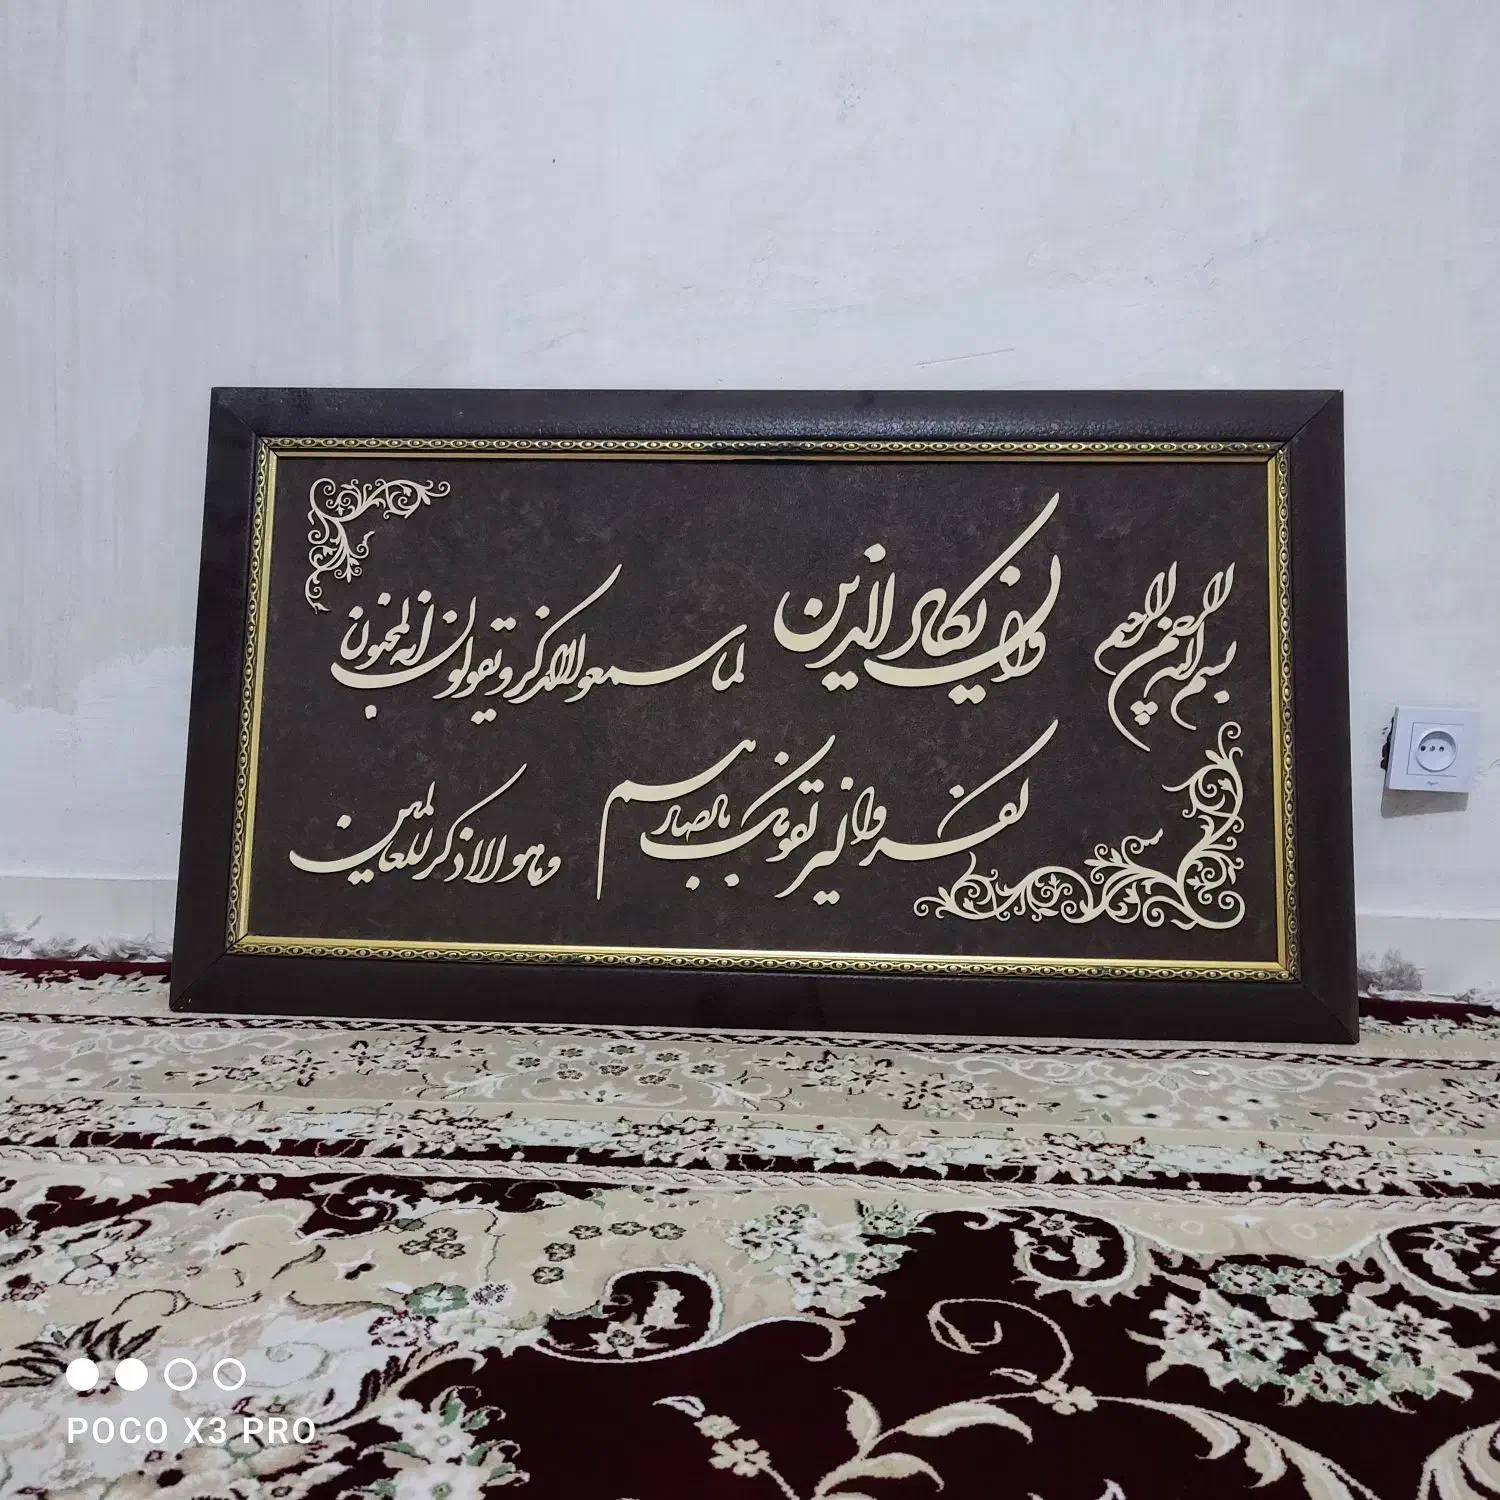 بسم الله الرحمن الرحیم
وان یکاد الذین
لما سمعوا الذکر و یقولون انه لمجنون
کفروا لیزلقونک بابصارهم
وما هو الا ذکر للعالمین
POCO X3 PRO